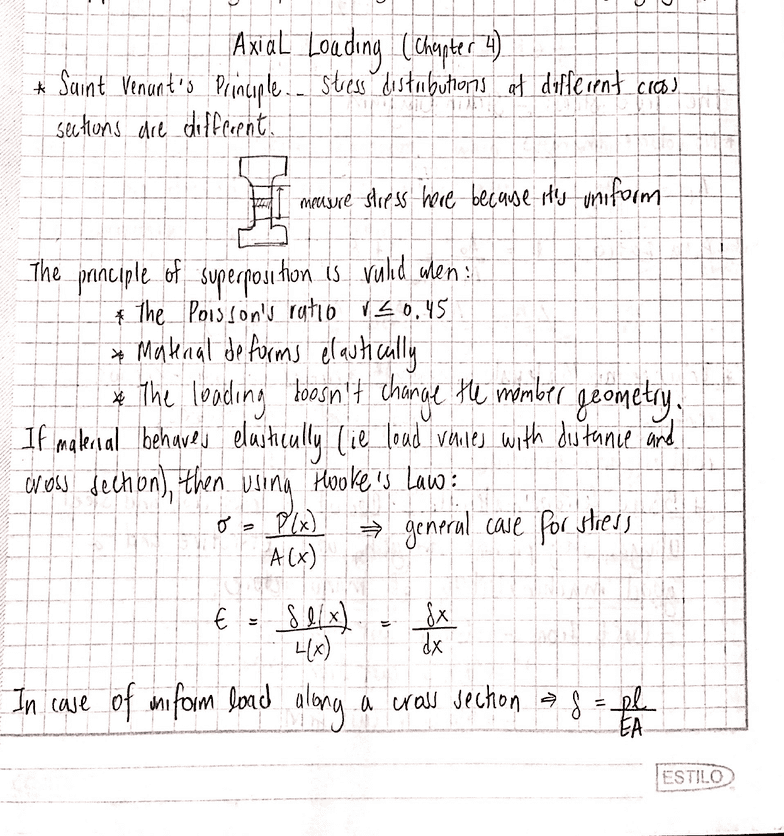 Axial Loading (Chapter 4)
* Saint Venant's Principle.- Stress distributions at different cross
sections are different.
measure stress here because it's uniform
The principle of superposition is valid when:
* The Poisson's ratio ν ≤ 0.45
* Material deforms elastically
* The loading doesn't change the member geometry.
If material behaves elastically (ie load varies with distance and
cross section), then using Hooke's Law:
σ = P(x)/A(x) ⇒ general case for stress
ϵ = δl(x)/L(x) = δx/dx
In case of uniform load along a cross section ⇒ δ = pl/EA
ESTILO